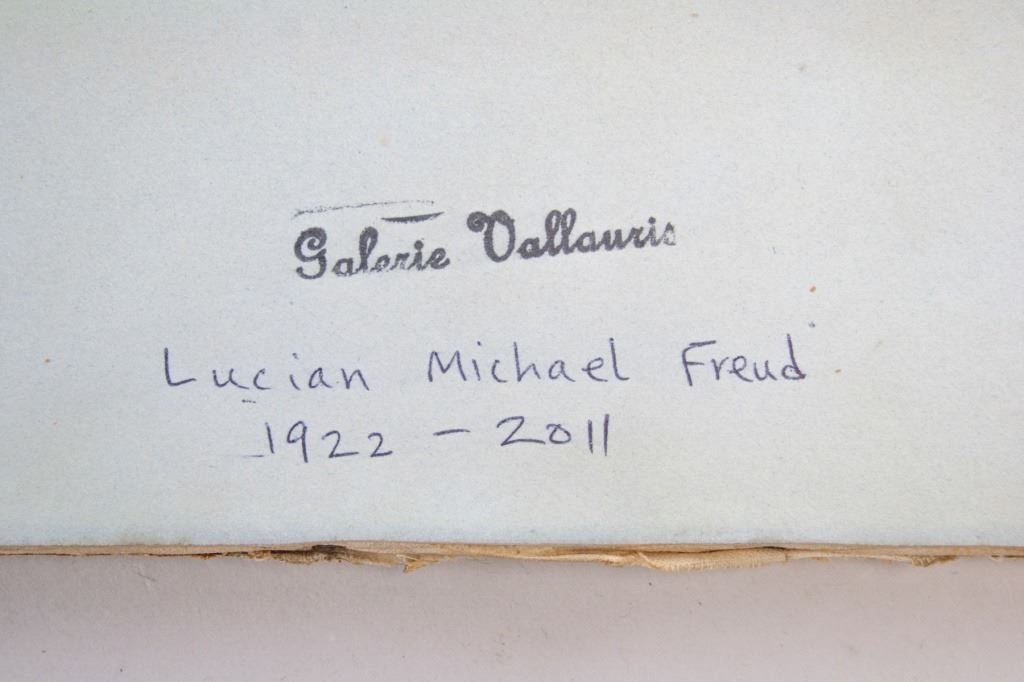 Galerie Vallauris
Lucian Michael Freud
1922 - 2011